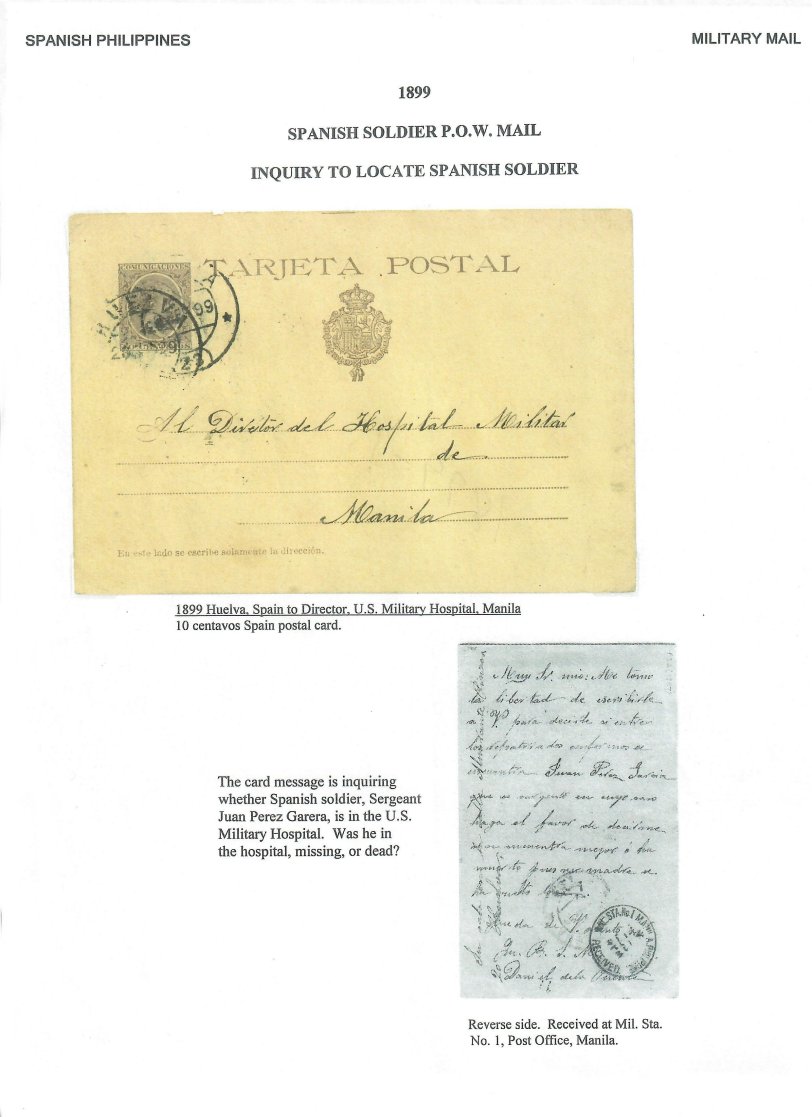 SPANISH PHILIPPINES
MILITARY MAIL
1899
SPANISH SOLDIER P.O.W. MAIL
INQUIRY TO LOCATE SPANISH SOLDIER
COMUNICACIONES
TARJETA POSTAL
HUELVA
99
Al Director del Hospital Militar
de
Manila
En este lado se escribe solamente la dirección.
1899 Huelva, Spain to Director, U.S. Military Hospital, Manila
10 centavos Spain postal card.
The card message is inquiring
whether Spanish soldier, Sergeant
Juan Perez Garera, is in the U.S.
Military Hospital. Was he in
the hospital, missing, or dead?
Muy Sr. mio: Me tomo
la libertad de escribirle
a V. para decirle si entre
los repatriados enfermos se
encuentra Juan Perez Garcia
que es sargento en cuyo caso
haga el favor de decirme
si se encuentra mejor ó ha
muerto pues su madre
queda de V.
Daniel de la
MIL. STA. No 1 MANILA
RECEIVED
Reverse side. Received at Mil. Sta.
No. 1, Post Office, Manila.